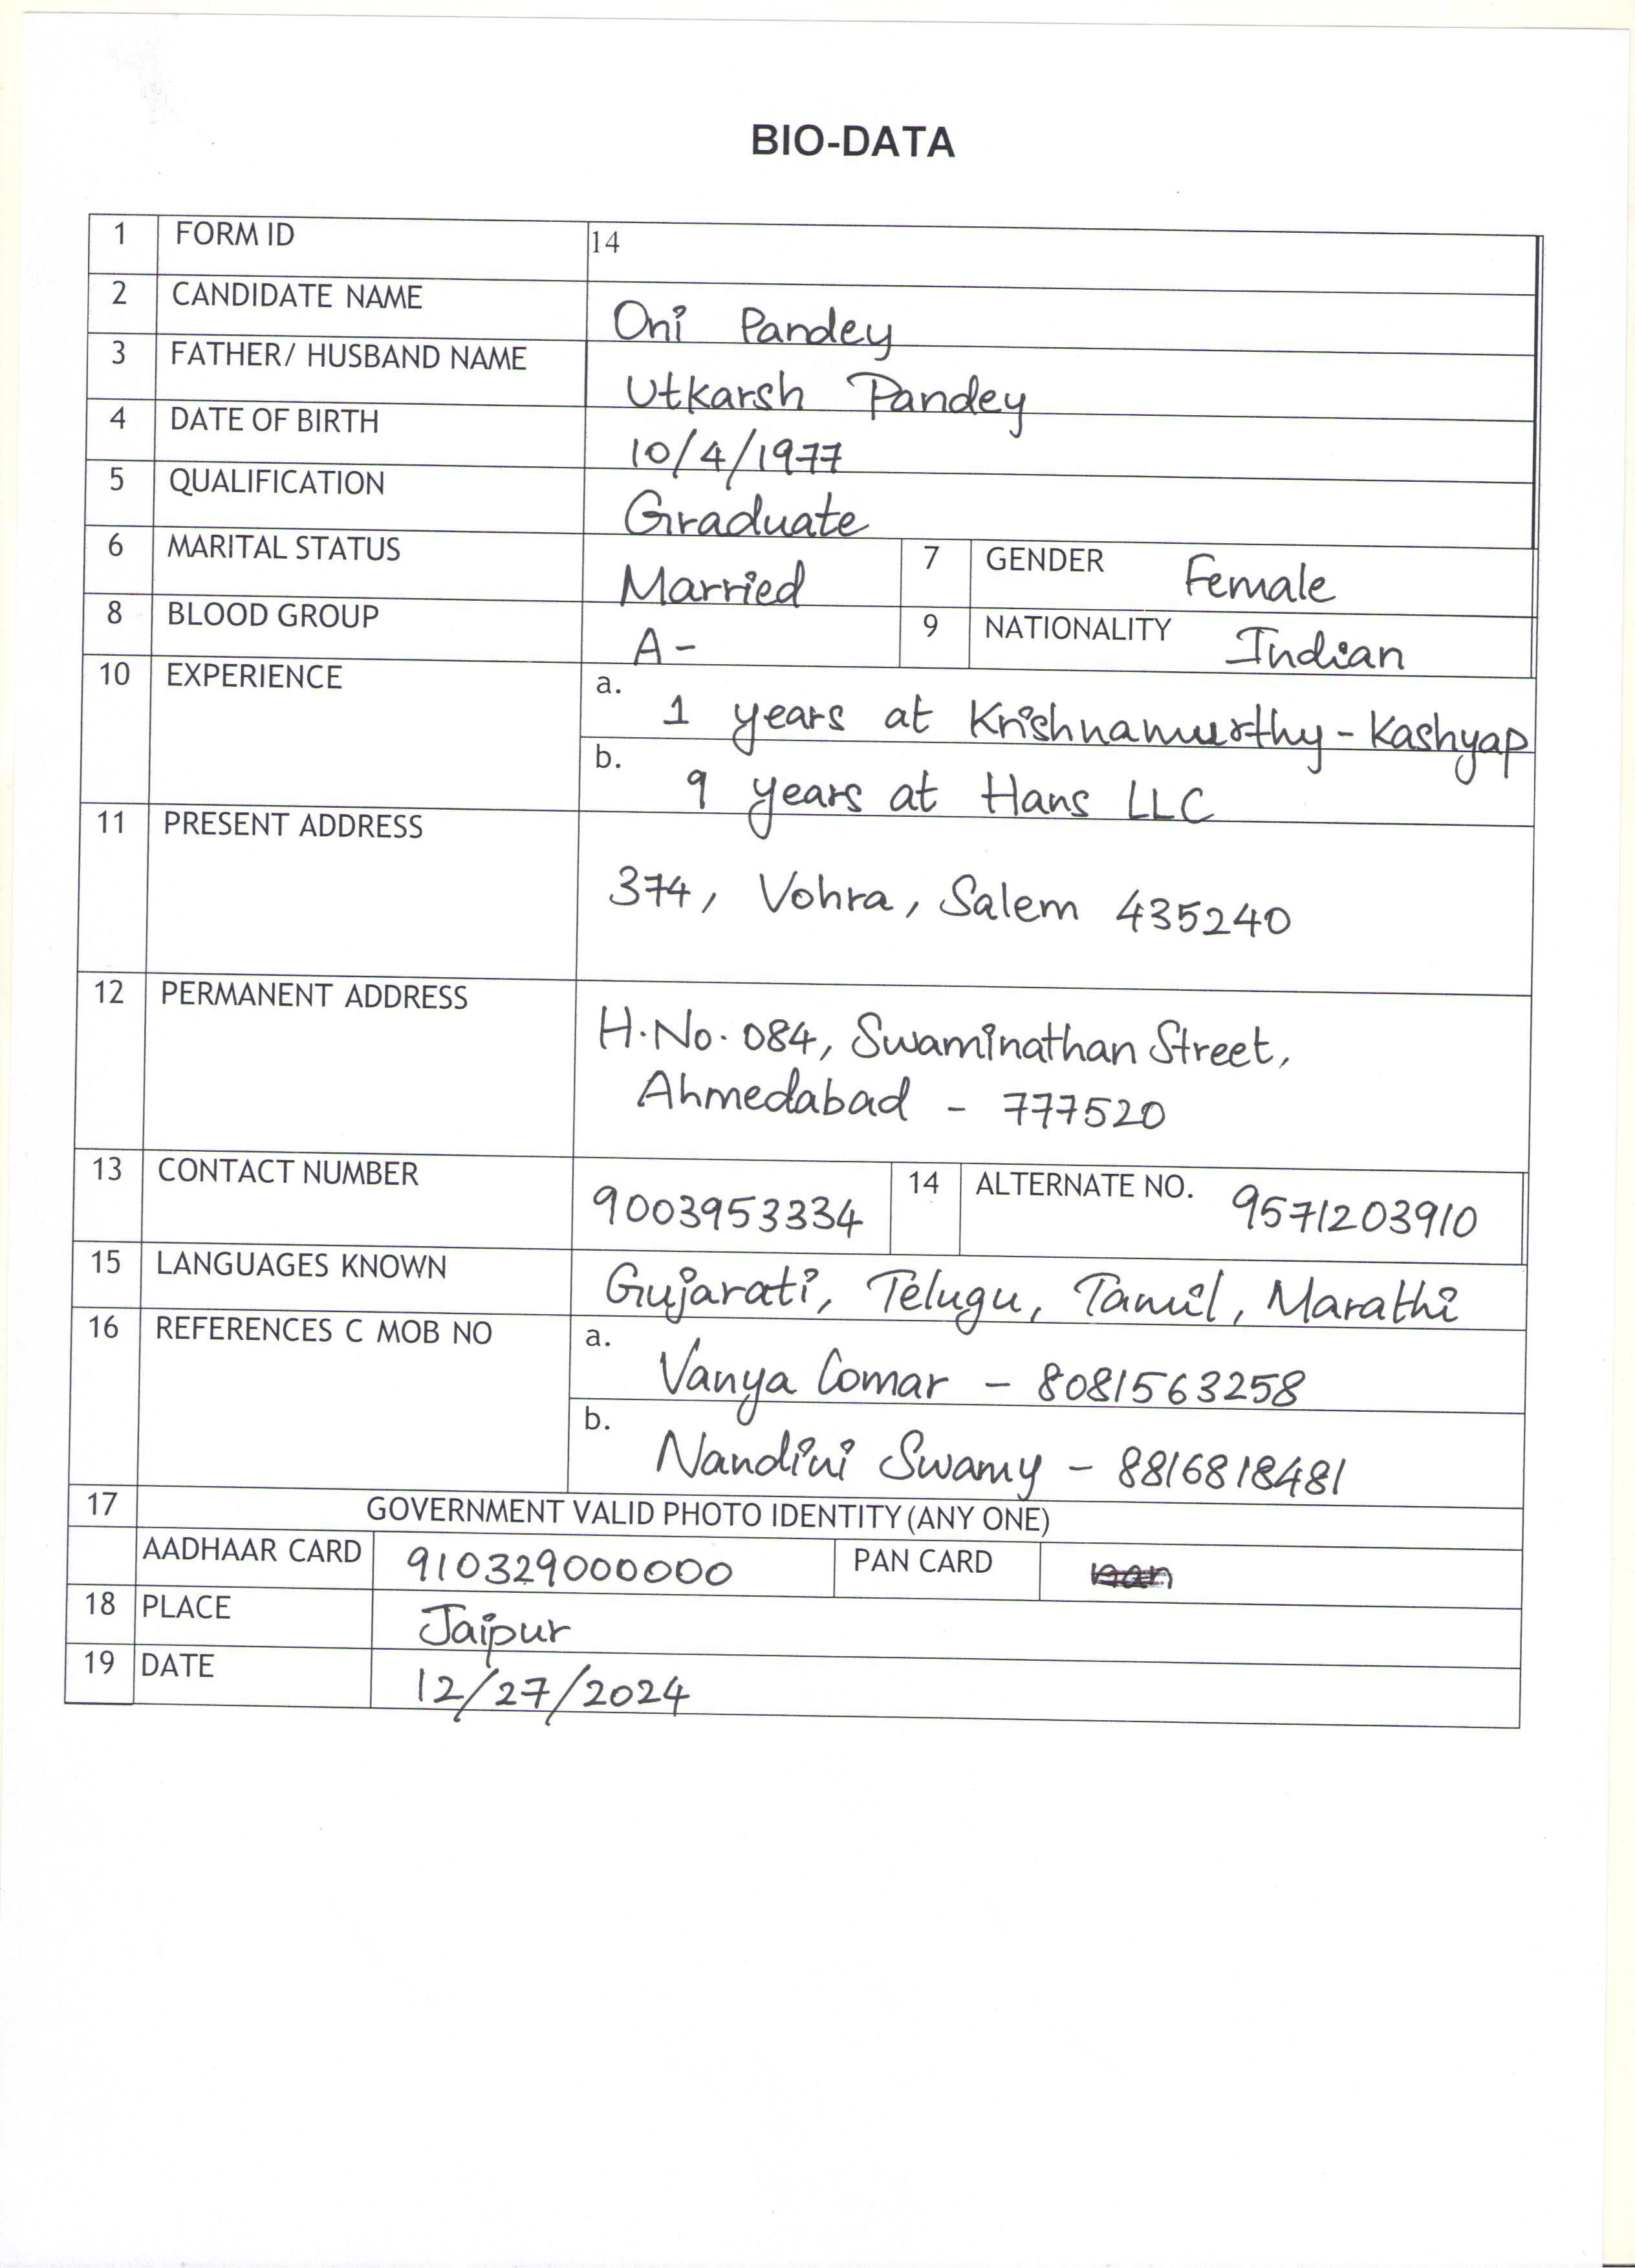 BIO-DATA
1 FORM ID 14
2 CANDIDATE NAME Oni Pandey
3 FATHER/ HUSBAND NAME Utkarsh Pandey
4 DATE OF BIRTH 10/4/1977
5 QUALIFICATION Graduate
6 MARITAL STATUS Married 7 GENDER Female
8 BLOOD GROUP A- 9 NATIONALITY Indian
10 EXPERIENCE a. 1 years at Krishnamurthy-Kashyap
b. 9 years at Hans LLC
11 PRESENT ADDRESS
374, Vohra, Salem 435240
12 PERMANENT ADDRESS
H.No. 084, Swaminathan Street,
Ahmedabad - 777520
13 CONTACT NUMBER 9003953334 14 ALTERNATE NO. 9571203910
15 LANGUAGES KNOWN Gujarati, Telugu, Tamil, Marathi
16 REFERENCES C MOB NO a. Vanya Comar - 8081563258
b. Nandini Swamy - 8816818481
17 GOVERNMENT VALID PHOTO IDENTITY (ANY ONE)
AADHAAR CARD 910329000000 PAN CARD
18 PLACE Jaipur
19 DATE 12/27/2024